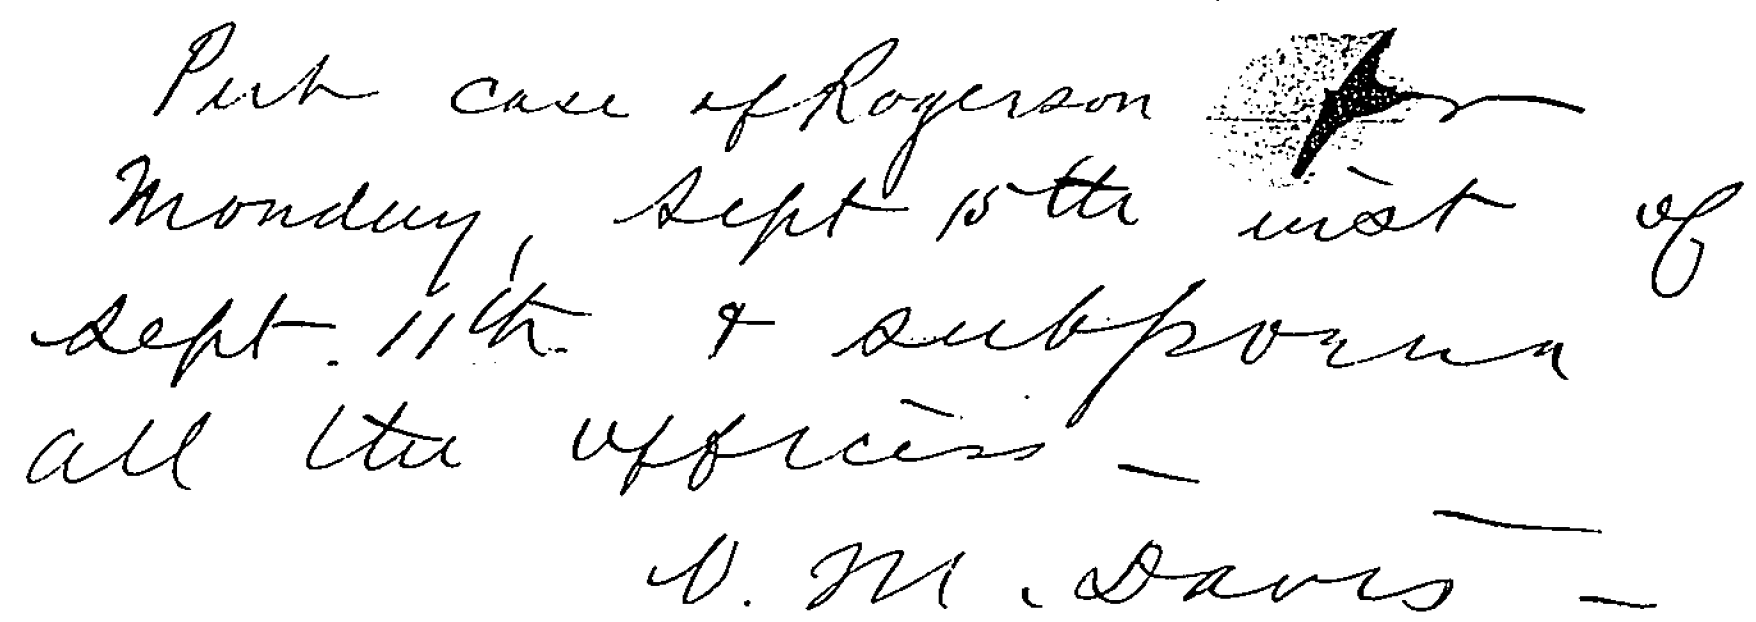 Put case of Rogerson for
Monday, Sept 15th inst of
Sept. 11th & subpoena
all the officers -
V. M. Davis -